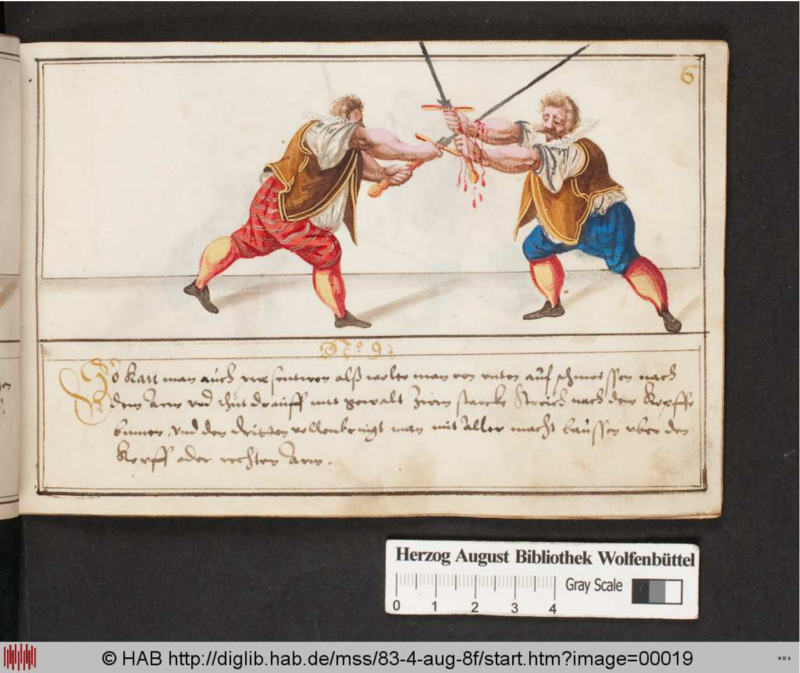 6
No. 9.
So kan man auch praesentiren alß wolte man von unten auf schmeissen nach
dem Arm und thut drauff mit gewalt zwen starcke Streich nach dem Kopffe
binnen, und den dritten vollenbringt man mit aller macht baussen uber den
Kopff oder rechten Arm.
Herzog August Bibliothek Wolfenbüttel
Gray Scale
0 1 2 3 4
© HAB http://diglib.hab.de/mss/83-4-aug-8f/start.htm?image=00019